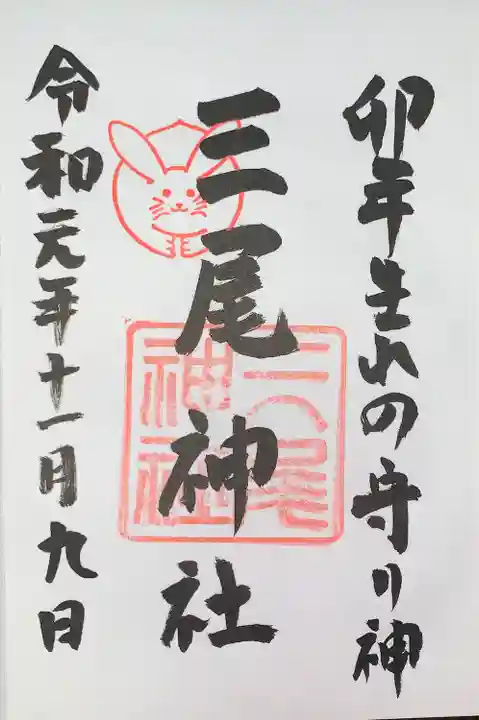 卯年生れの守り神
三尾神社
三尾神社
令和元年十一月九日